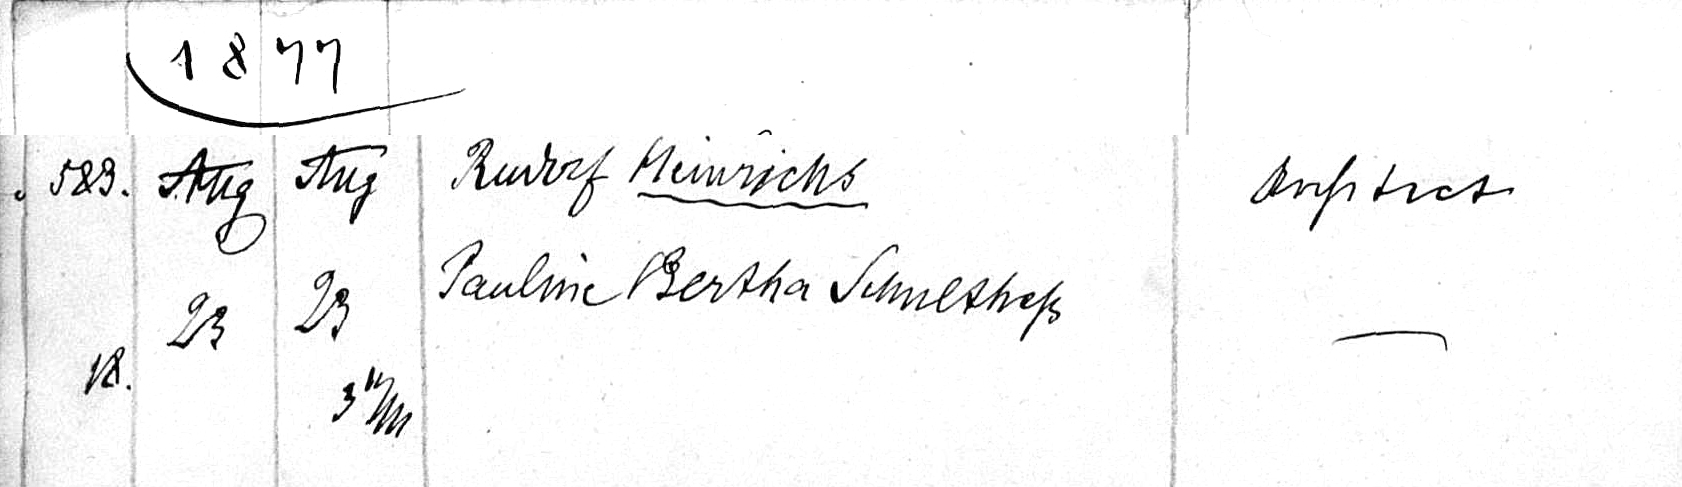 1877
583. Aug Aug Rudolf Heinrichs Architect
23 23 Pauline Bertha Schulthess —
18.